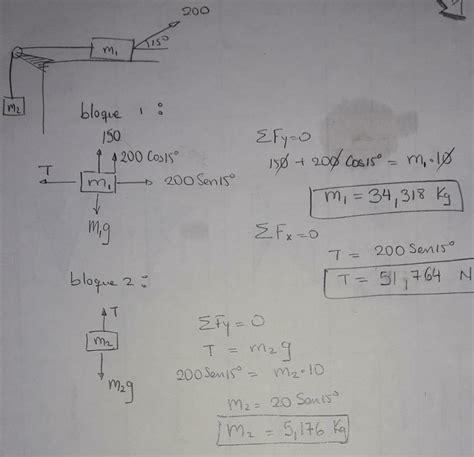 200
m₁
15°
m₂
bloque 1:
150
200 Cos15°
T
m₁
200 Sen15°
m₁g
ΣFy=0
150 + 200 Cos15° = m₁·10
m₁ = 34,318 Kg
ΣFx=0
T = 200 Sen15°
T = 51,764 N
bloque 2:
T
m₂
m₂g
ΣFy=0
T = m₂g
200 Sen15° = m₂·10
m₂ = 20 Sen15°
m₂ = 5,176 Kg